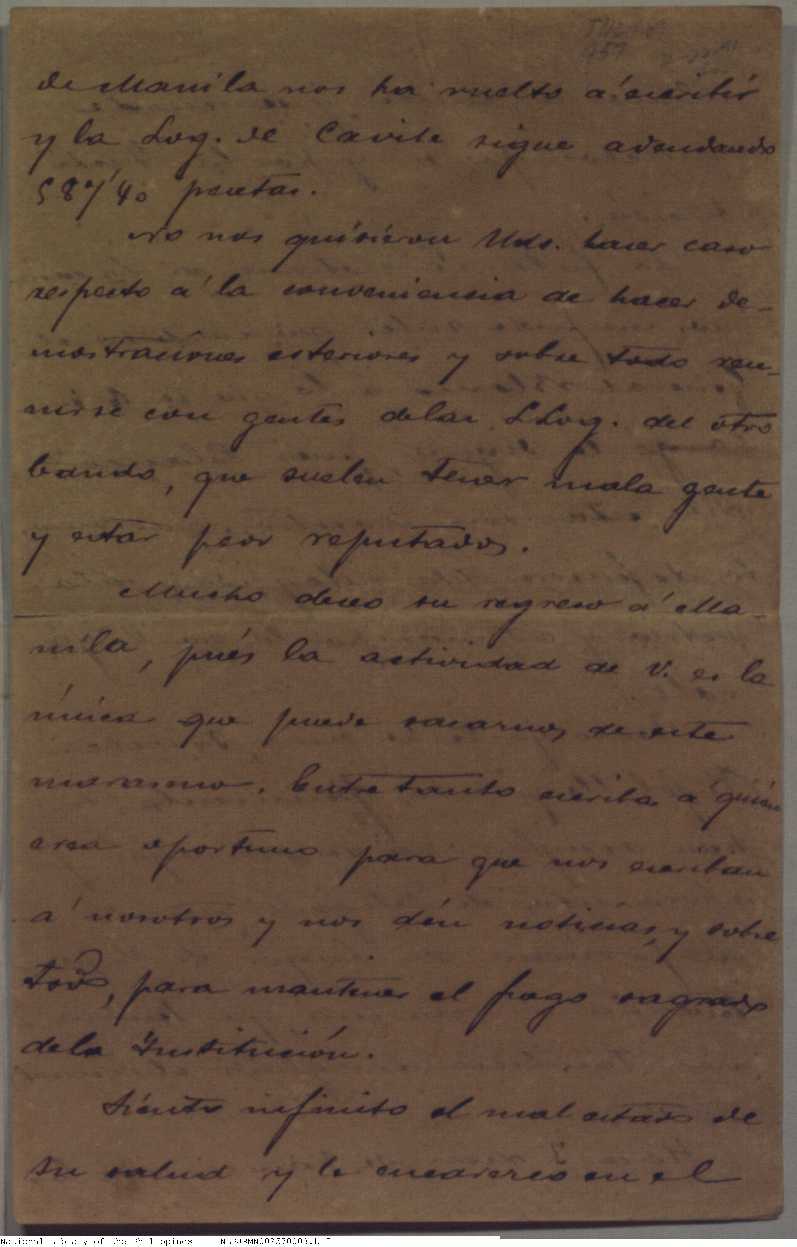 de Manila nos ha vuelto á escribir
y la Log. de Cavite sigue adeudando
587'40 pesetas.
No nos quisieron Uds. hacer caso
respecto á la conveniencia de hacer de-
mostraciones esteriores y sobre todo reu-
nirse con gentes delas LLog. del otro
bando, que suelen tener mala gente
y estar peor reputados.
Mucho deseo su regreso á Ma-
nila, pués la actividad de V. es la
única que puede sacarnos de este
marasmo. Entretanto escriba á quién
crea oportuno para que nos escriban
á nosotros y nos dén noticias, y sobre
todo, para mantener el fuego sagrado
dela Institución.
Siento infinito el mal estado de
su salud y le encarezco en el
National Library of the Philippines